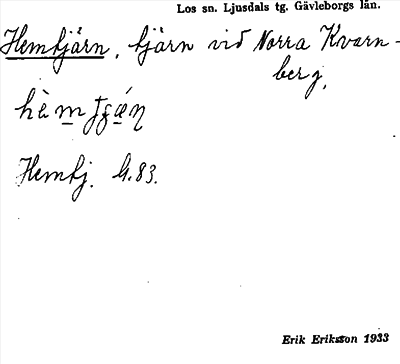 Los sn. Ljusdals tg. Gävleborgs län.
Hemtjärn, tjärn vid Norra Kvarn-
berg.
Hemtj. G.83.
Erik Eriksson 1933